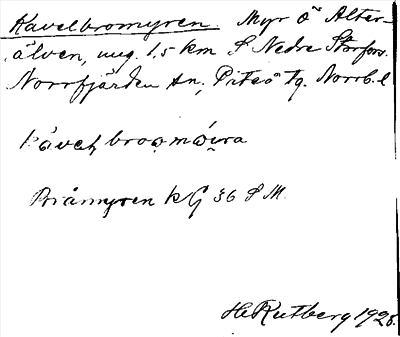 Kavelbromyren. Myr Ö Alter-
älven, ung. 1,5 km S Nedre Storfors.
Norrfjärden sn, Piteå tg. Norrb. l
kavel̥ broo̩mώi̯ra
Briåmyren kG 36 S M.
H. Rutberg 1928.